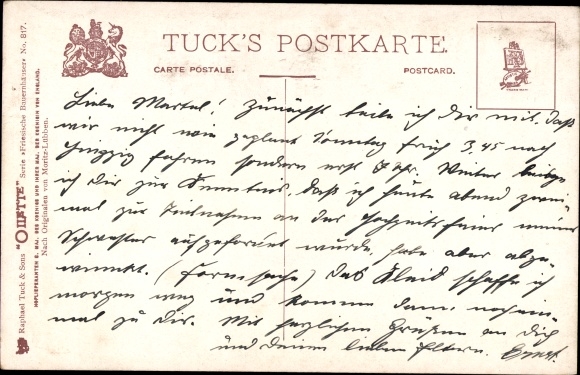 TUCK'S POSTKARTE.
CARTE POSTALE. POSTCARD.
Raphael Tuck & Sons "OILETTE" Serie «Friesische Bauernhäuser» No. 817.
HOFLIEFERANTEN S. MAJ. DES KOENIGS UND IHRER MAJ. DER KOENIGIN VON ENGLAND.
Nach Originalen von Moritz-Lübben.
Liebe Martel! Zunächst teile ich Dir mit, daß
wir nicht wie geplant Sonntag früh 3.45 nach
Leipzig fahren sondern erst 7 Uhr. Weiter bringe
ich Dir zur Kenntnis, daß ich heute abend zwei-
mal zur Teilnahme an der Hochzeitsfeier meiner
Schwester aufgefordert wurde, habe aber abge-
winkt. (Formsache) Das Kleid schaffe ich
morgen weg und komme dann noch ein-
mal zu Dir. Mit herzlichen Grüßen an Dich
und Deine lieben Eltern. Ernst.